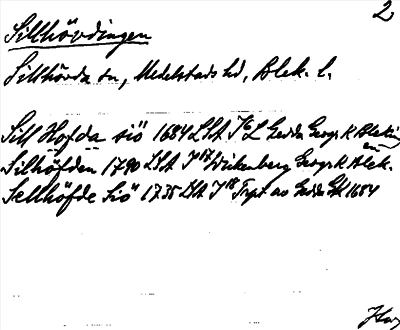 2
Sillhövdingen
Sillhövda sn, Medelstads hd, Blek. l.
Sill Hofda siö 1684 LSA K6 Gedda Geogr. K. Bleking
en
Silhöfden 1790 LSA Wikenberg Geogr. K. Blek.
Sellhöfde Siö 1735 LSA Trpt av Gedda GK 1684